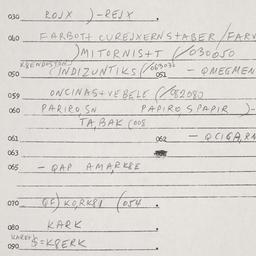 030 ROJX )-REJX
040 FARBOT+ CUREJXERNS+ABER /FARV
)MITORNIS+T (/030050
050 (INDIZUNTIKS 051 - QMEGMEN
059 ONCINAS+VEBELE (/
060 PARIRO,SN PAPIRO,SPAPIR )-
TA,BAK (008
061 062 - QCIGA,RN
063
065 - QAP AMARKRE
070 QE)KO,RKPI (054
080 KARK
090 S=KRERK